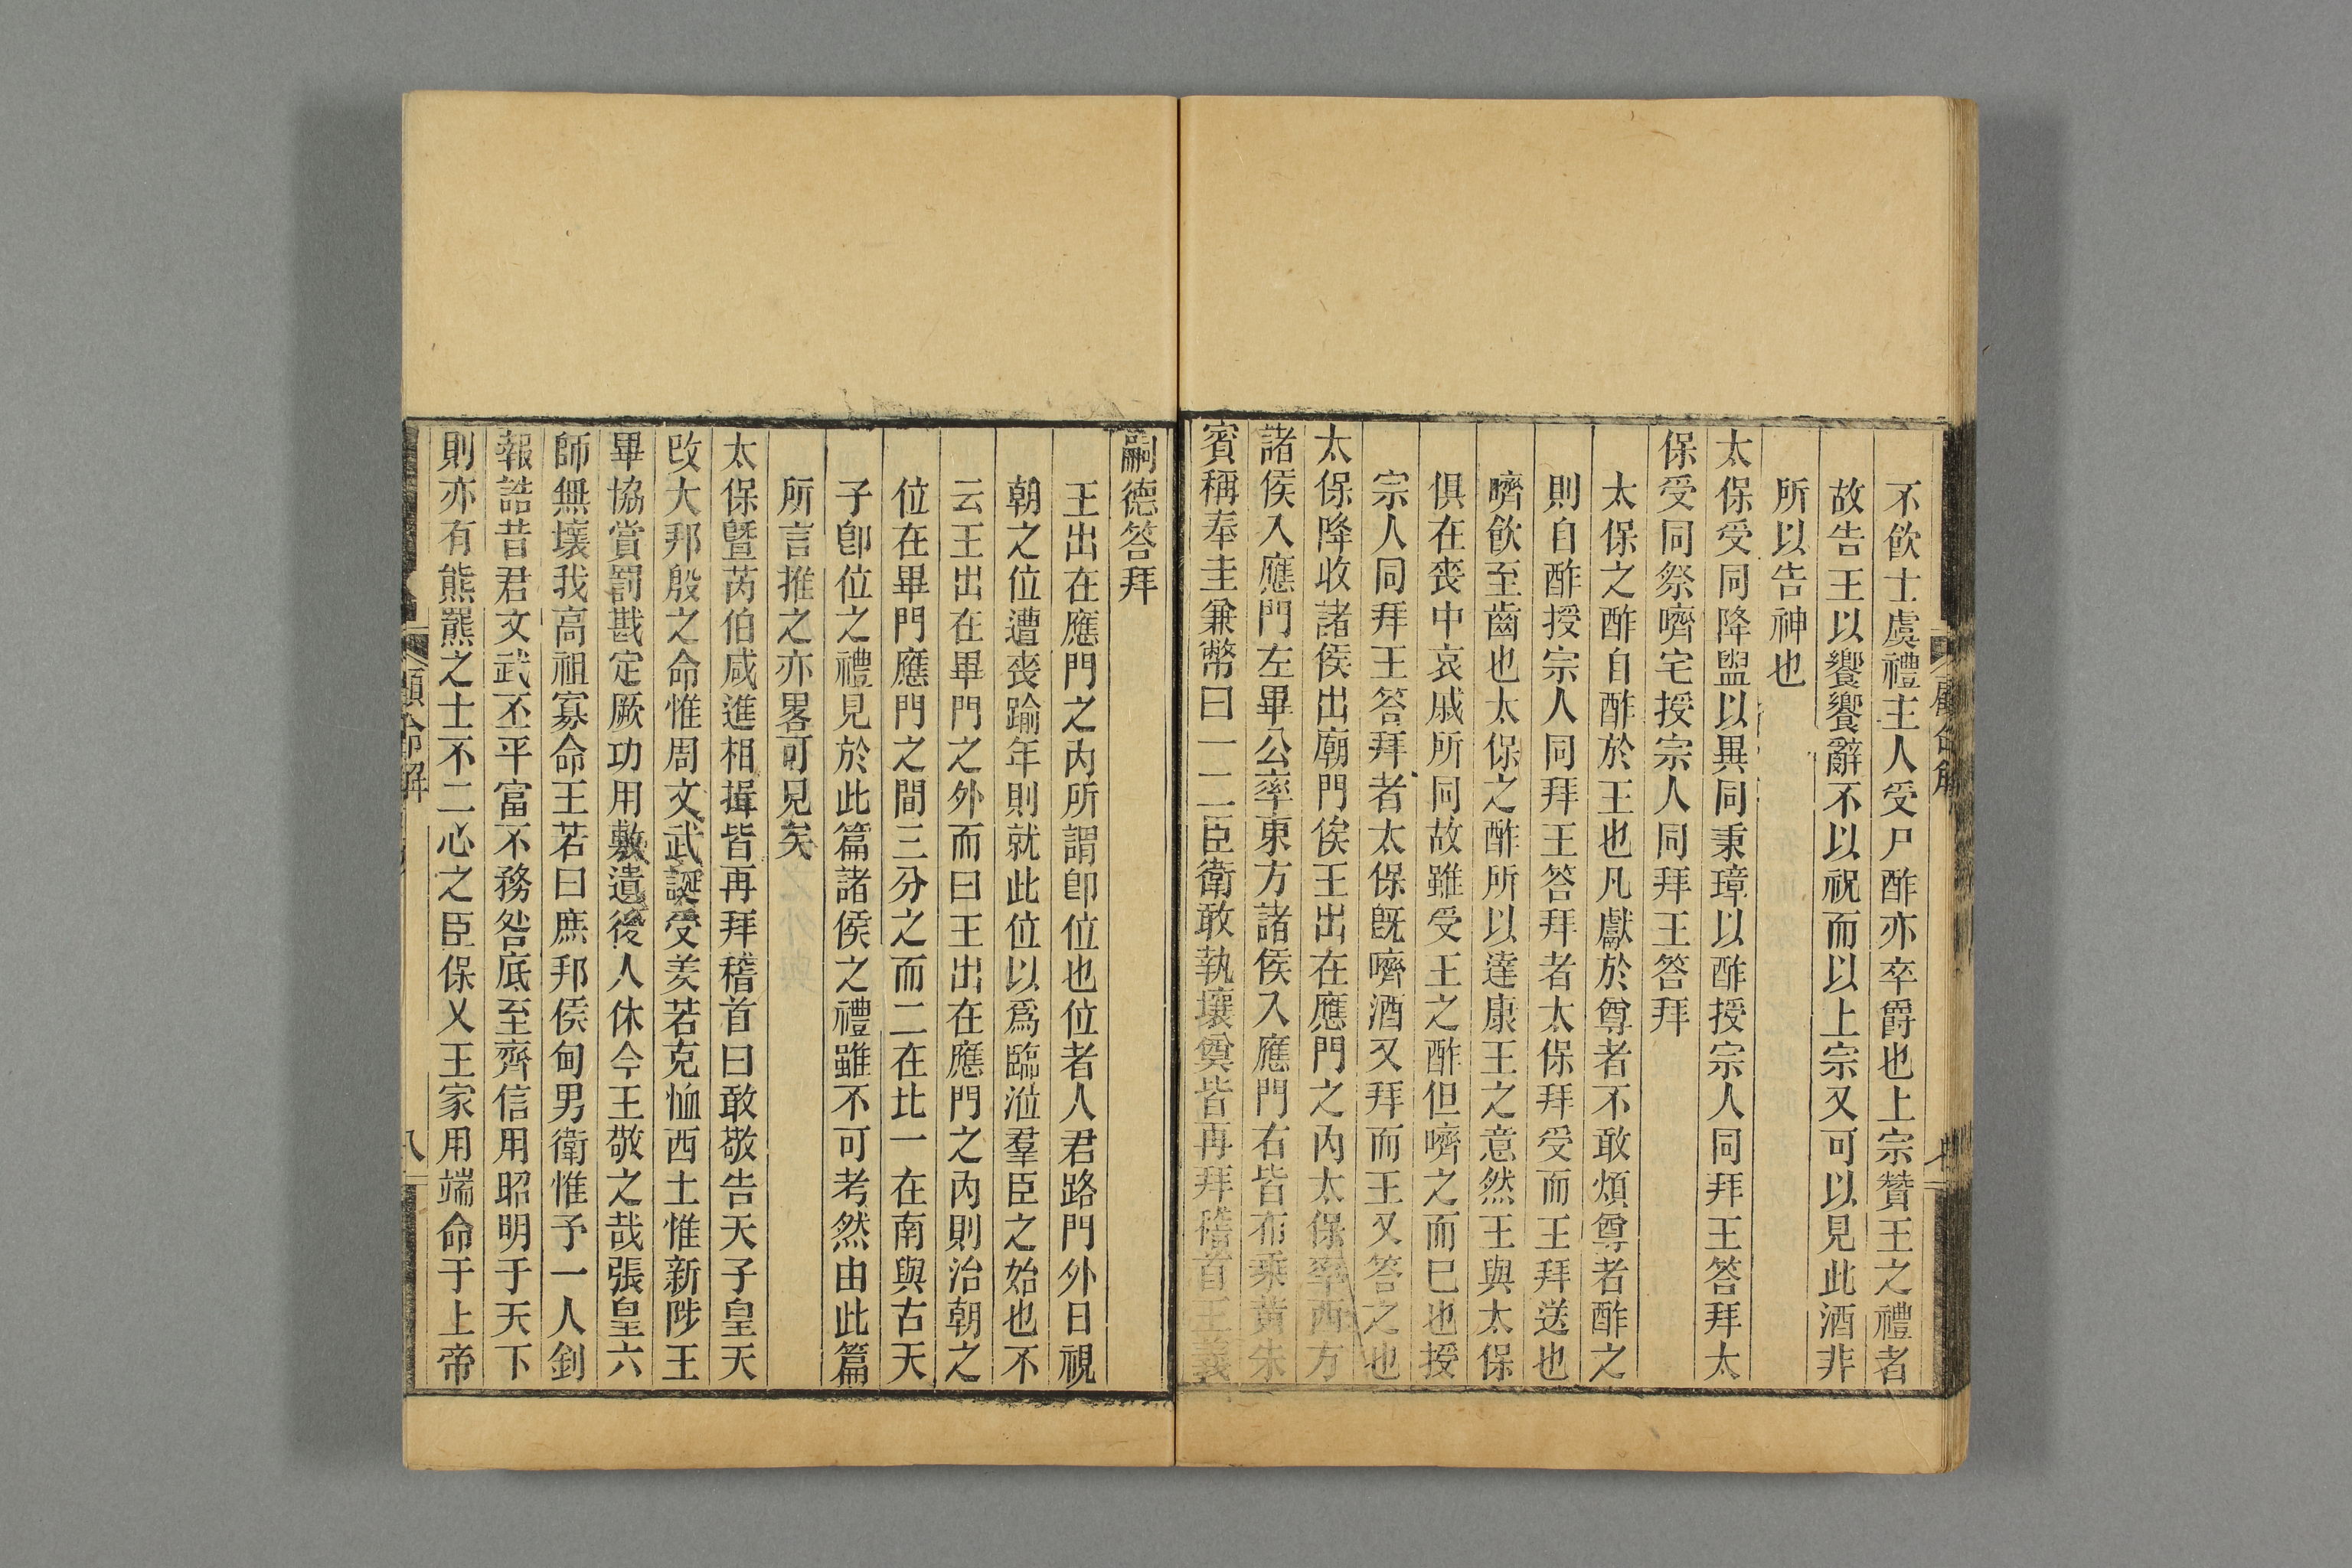 不飲士虞禮主人受尸酢亦卒爵也上宗贊王之禮者
故告王以饗饗辭不以祝而以上宗又可以見此酒非
所以告神也
太保受同降盥以異同秉璋以酢授宗人同拜王答拜太
保受同祭嚌宅授宗人同拜王答拜
太保之酢自酢於王也凡獻於尊者不敢煩尊者酢之
則自酢授宗人同拜王答拜者太保拜受而王拜送也
嚌飲至齒也太保之酢所以達康王之意然王與太保
俱在喪中哀戚所同故雖受王之酢但嚌之而巳也授
宗人同拜王答拜者太保旣嚌酒又拜而王又答之也
太保降收諸侯出廟門俟王出在應門之內太保率西方
諸侯入應門左畢公率東方諸侯入應門右皆布乘黃朱
賓稱奉圭兼幣曰一二臣衛敢執壤奠皆再拜稽首王義
嗣德答拜
王出在應門之內所謂卽位也位者人君路門外日視
朝之位遭喪踰年則就此位以爲臨涖羣臣之始也不
云王出在畢門之外而曰王出在應門之內則治朝之
位在畢門應門之間三分之而二在北一在南與古天
子卽位之禮見於此篇諸侯之禮雖不可考然由此篇
所言推之亦畧可見矣
太保曁芮伯咸進相揖皆再拜稽首曰敢敬告天子皇天
改大邦殷之命惟周文武誕受羑若克恤西土惟新陟王
畢協賞罰戡定厥功用敷遺後人休今王敬之哉張皇六
師無壞我高祖寡命王若曰庶邦侯甸男衛惟予一人釗
報誥昔君文武丕平富不務咎底至齊信用昭明于天下
則亦有熊羆之士不二心之臣保乂王家用端命于上帝
顧命解
八